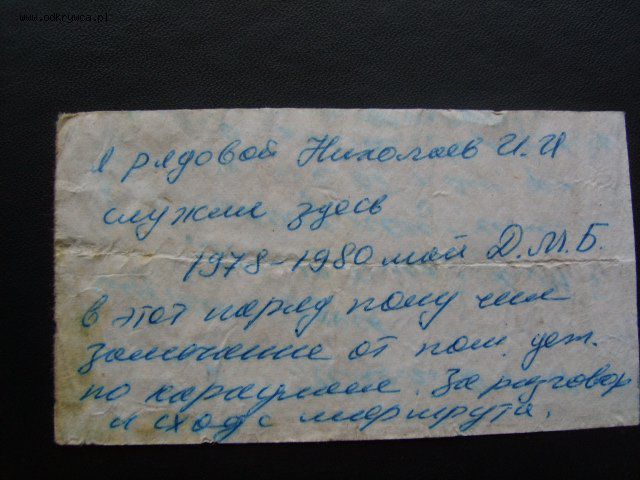 www.odkrywca.pl
я рядовой Николаев И.И
служил здесь
1978-1980 май Д.М.Б.
в этот наряд получил
замечание от пом. деж.
по караулам. За разговор
и сход с маршрута.